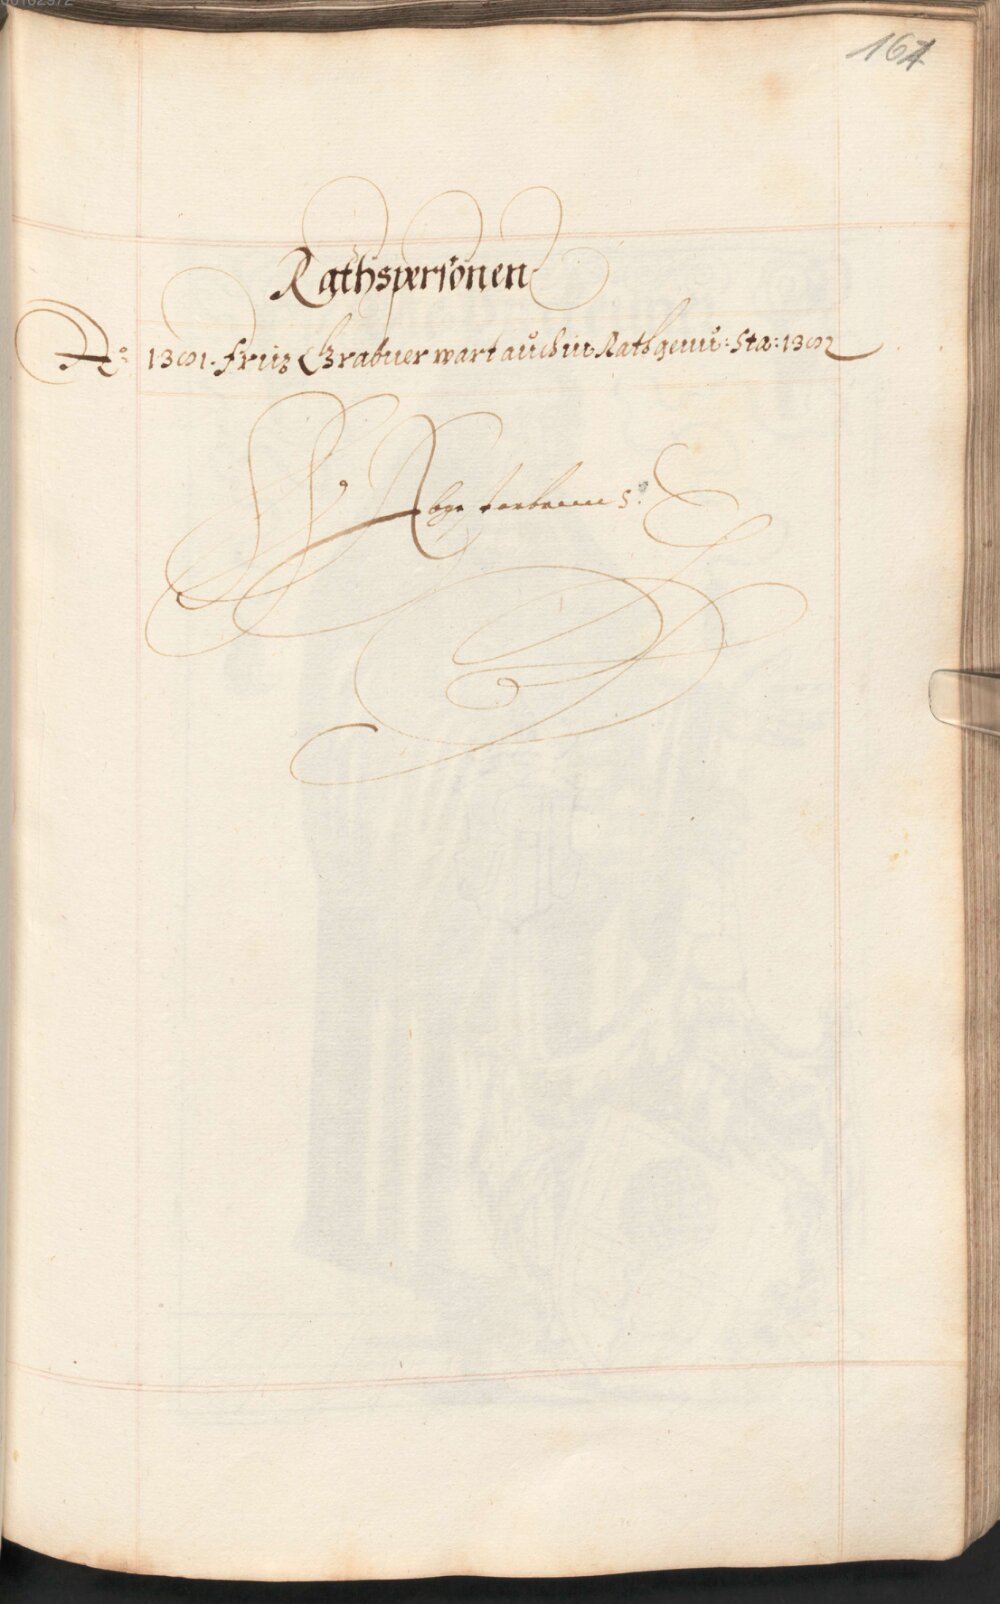 164
Rathspersonen
Aº: 1301. Fritz Grabner wart auch in Rath genu: Sta: 1302
Abgestorben 5.